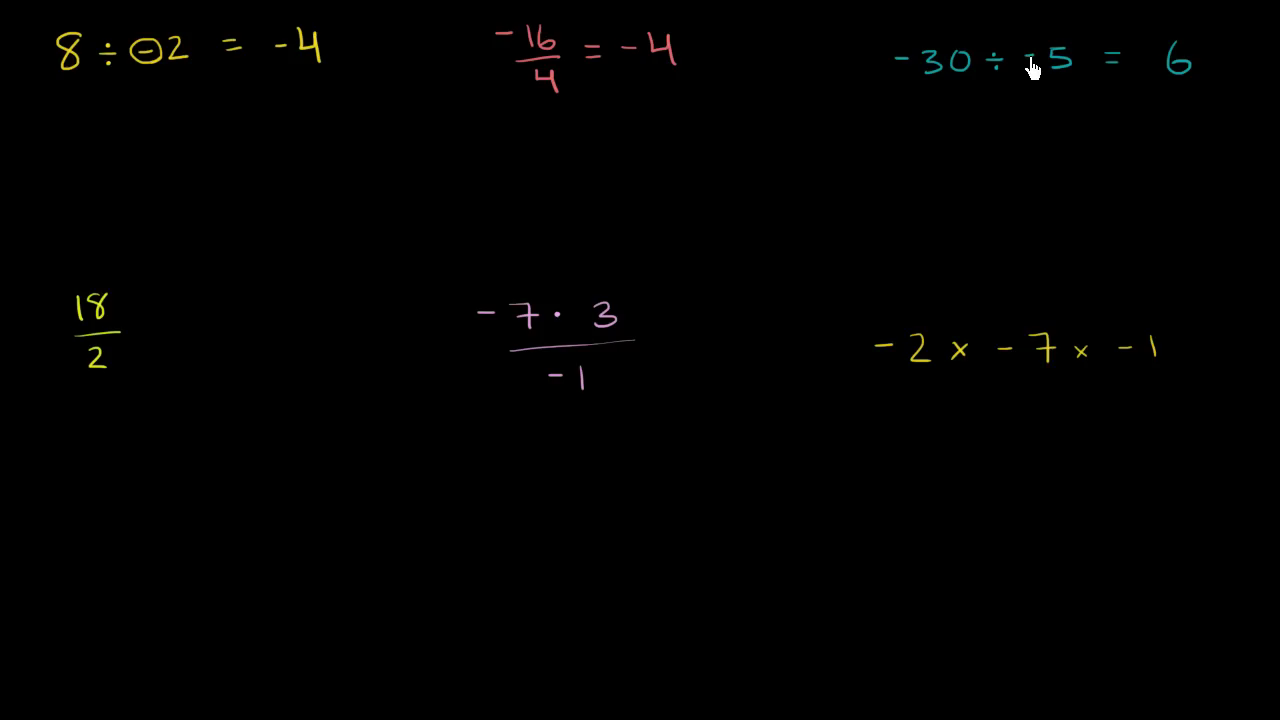 8 ÷ -2 = -4
-16/4 = -4
-30 ÷ -5 = 6
18/2
-7 · 3
-1
-2 x -7 x -1